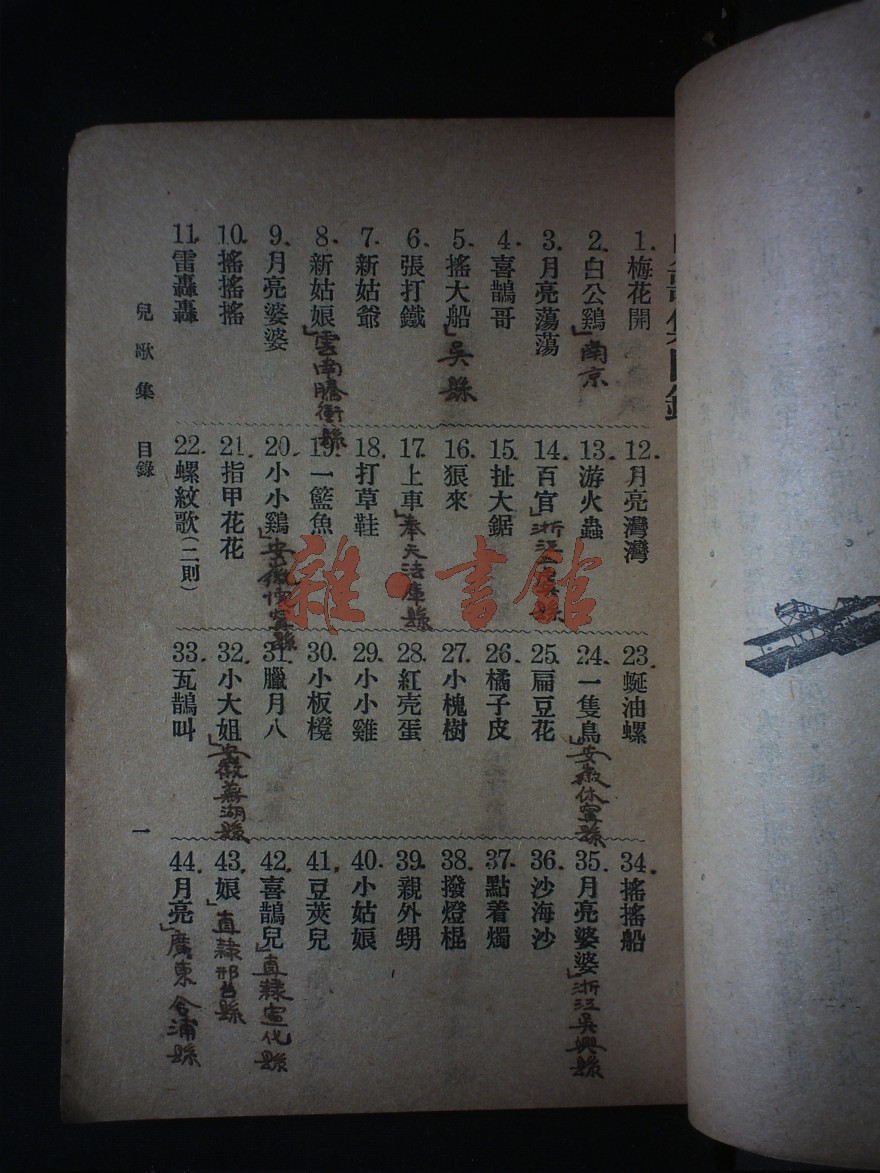 1. 梅花開
2. 白公鷄」南京
3. 月亮蕩蕩
4. 喜鵲哥
5. 搖大船」吳縣
6. 張打鐵
7. 新姑爺
8. 新姑娘」雲南騰衝縣
9. 月亮婆婆
10. 搖搖搖
11. 雷轟轟
12. 月亮灣灣
13. 游火蟲
14. 百官」浙江 縣
15. 扯大鋸
16. 狼來
17. 上車」奉天法庫縣
18. 打草鞋
19. 一籃魚
20. 小小鷄」安徽 縣
21. 指甲花花
22. 螺紋歌(二則)
23. 蜒油螺
24. 一隻鳥」安徽休寧縣
25. 扁豆花
26. 橘子皮
27. 小槐樹
28. 紅壳蛋
29. 小小雞
30. 小板櫈
31. 臘月八
32. 小大姐」安徽蕪湖縣
33. 瓦鵲叫
34. 搖搖船
35. 月亮婆婆」浙江吳興縣
36. 沙海沙
37. 點着燭
38. 撥燈棍
39. 親外甥
40. 小姑娘
41. 豆莢兒
42. 喜鵲兒」直隸宣化縣
43. 娘」直隸邢台縣
44. 月亮」廣東合浦縣
兒歌集 目錄
一
雜·書館